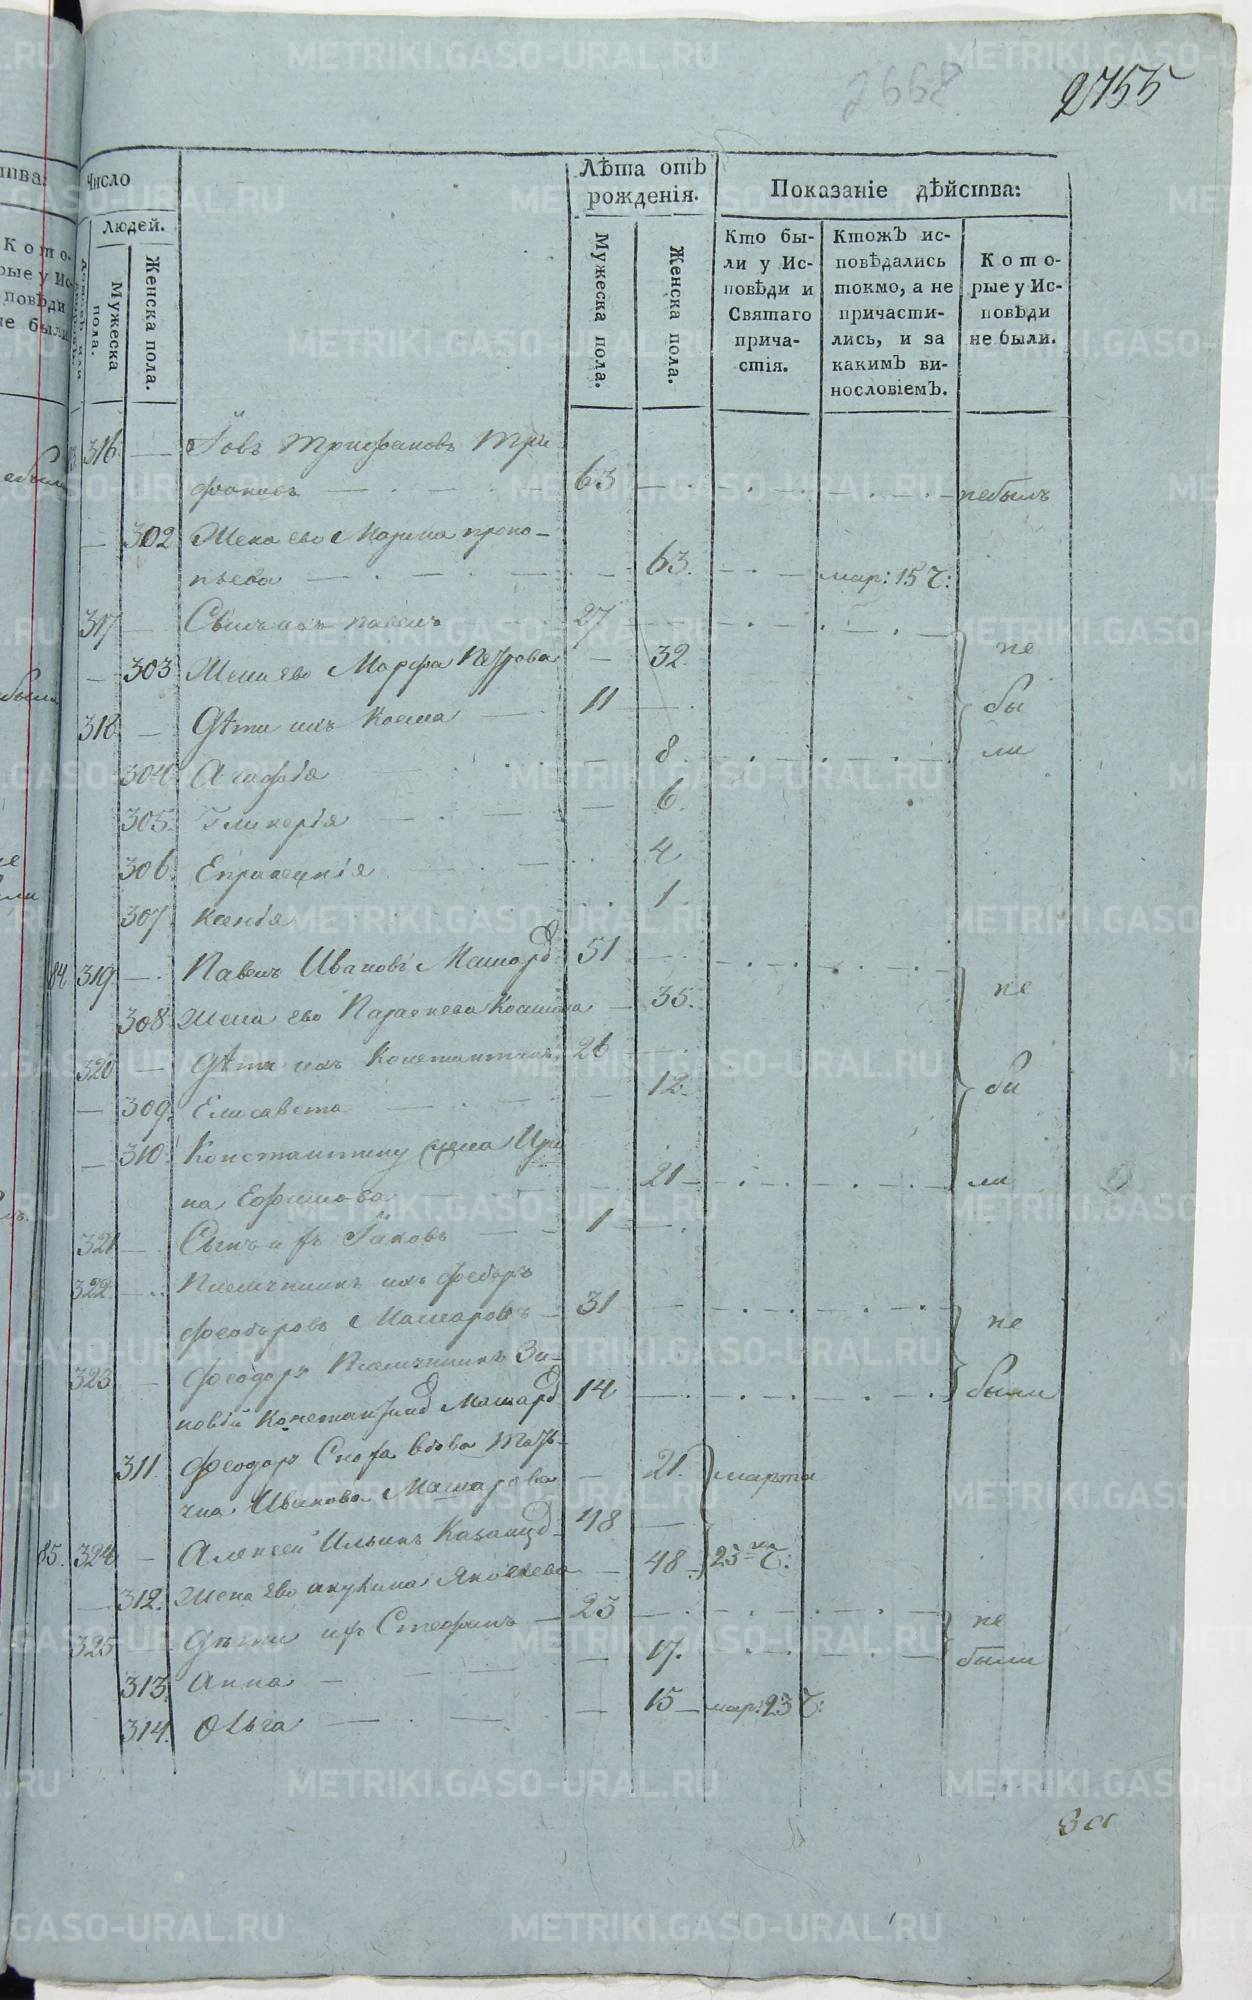 2668
2755
Число
людей.
Мужеска пола.
Женска пола.
Лѣта отъ рожденія.
Мужеска пола.
Женска пола.
Показаніе дѣйства:
Кто бы-
ли у Ис-
повѣди и
Святаго
прича-
стія.
Ктожъ ис-
повѣдались
токмо, а не
причасти-
лись, и за
какимъ ви-
нословіемъ.
Кото-
рые у Ис-
повѣди
не были.
316. Іовъ Трифановъ Три
фановъ 63 небылъ
302 Жена ево Марина проко-
пьева 63. мар: 15 ч:
317 Сынъ ихъ павелъ 27
303 Жена ево Марфа Петрова 32. не
318 Дѣти ихъ Косма 11 бы
304 Агафія 8 ли
305. Гликерія 6.
306. Епраксиія 4
307 Ксенія 1
84 319 Павелъ Ивановъ Машаро 51
308 Жена ево Параскева Космина 35. не
320 Дѣти ихъ Константинъ 26
309. Елисавета 12. бы
310 Константину жена Ири
на Ефимова 21 ли
321 Сынъ ихъ Іаковъ 1
322 Племянникъ ихъ Феодоръ
Феодоровъ Машаровъ 31 не
323 Феодоръ Племянникъ Зи-
новій Константинов Машаро 14 были
311. Феодоръ Сноха вдова Тать-
яна Иванова Машарова 21. марта
85. 324 Алексей Ильинъ Казанцо 48
312. Жена ево акулина Яковлева 48 23 ч:
325 Дѣти их Стефанъ 25 не
313. Анна 17. были
314. Ольга 15 мар: 23 ч: